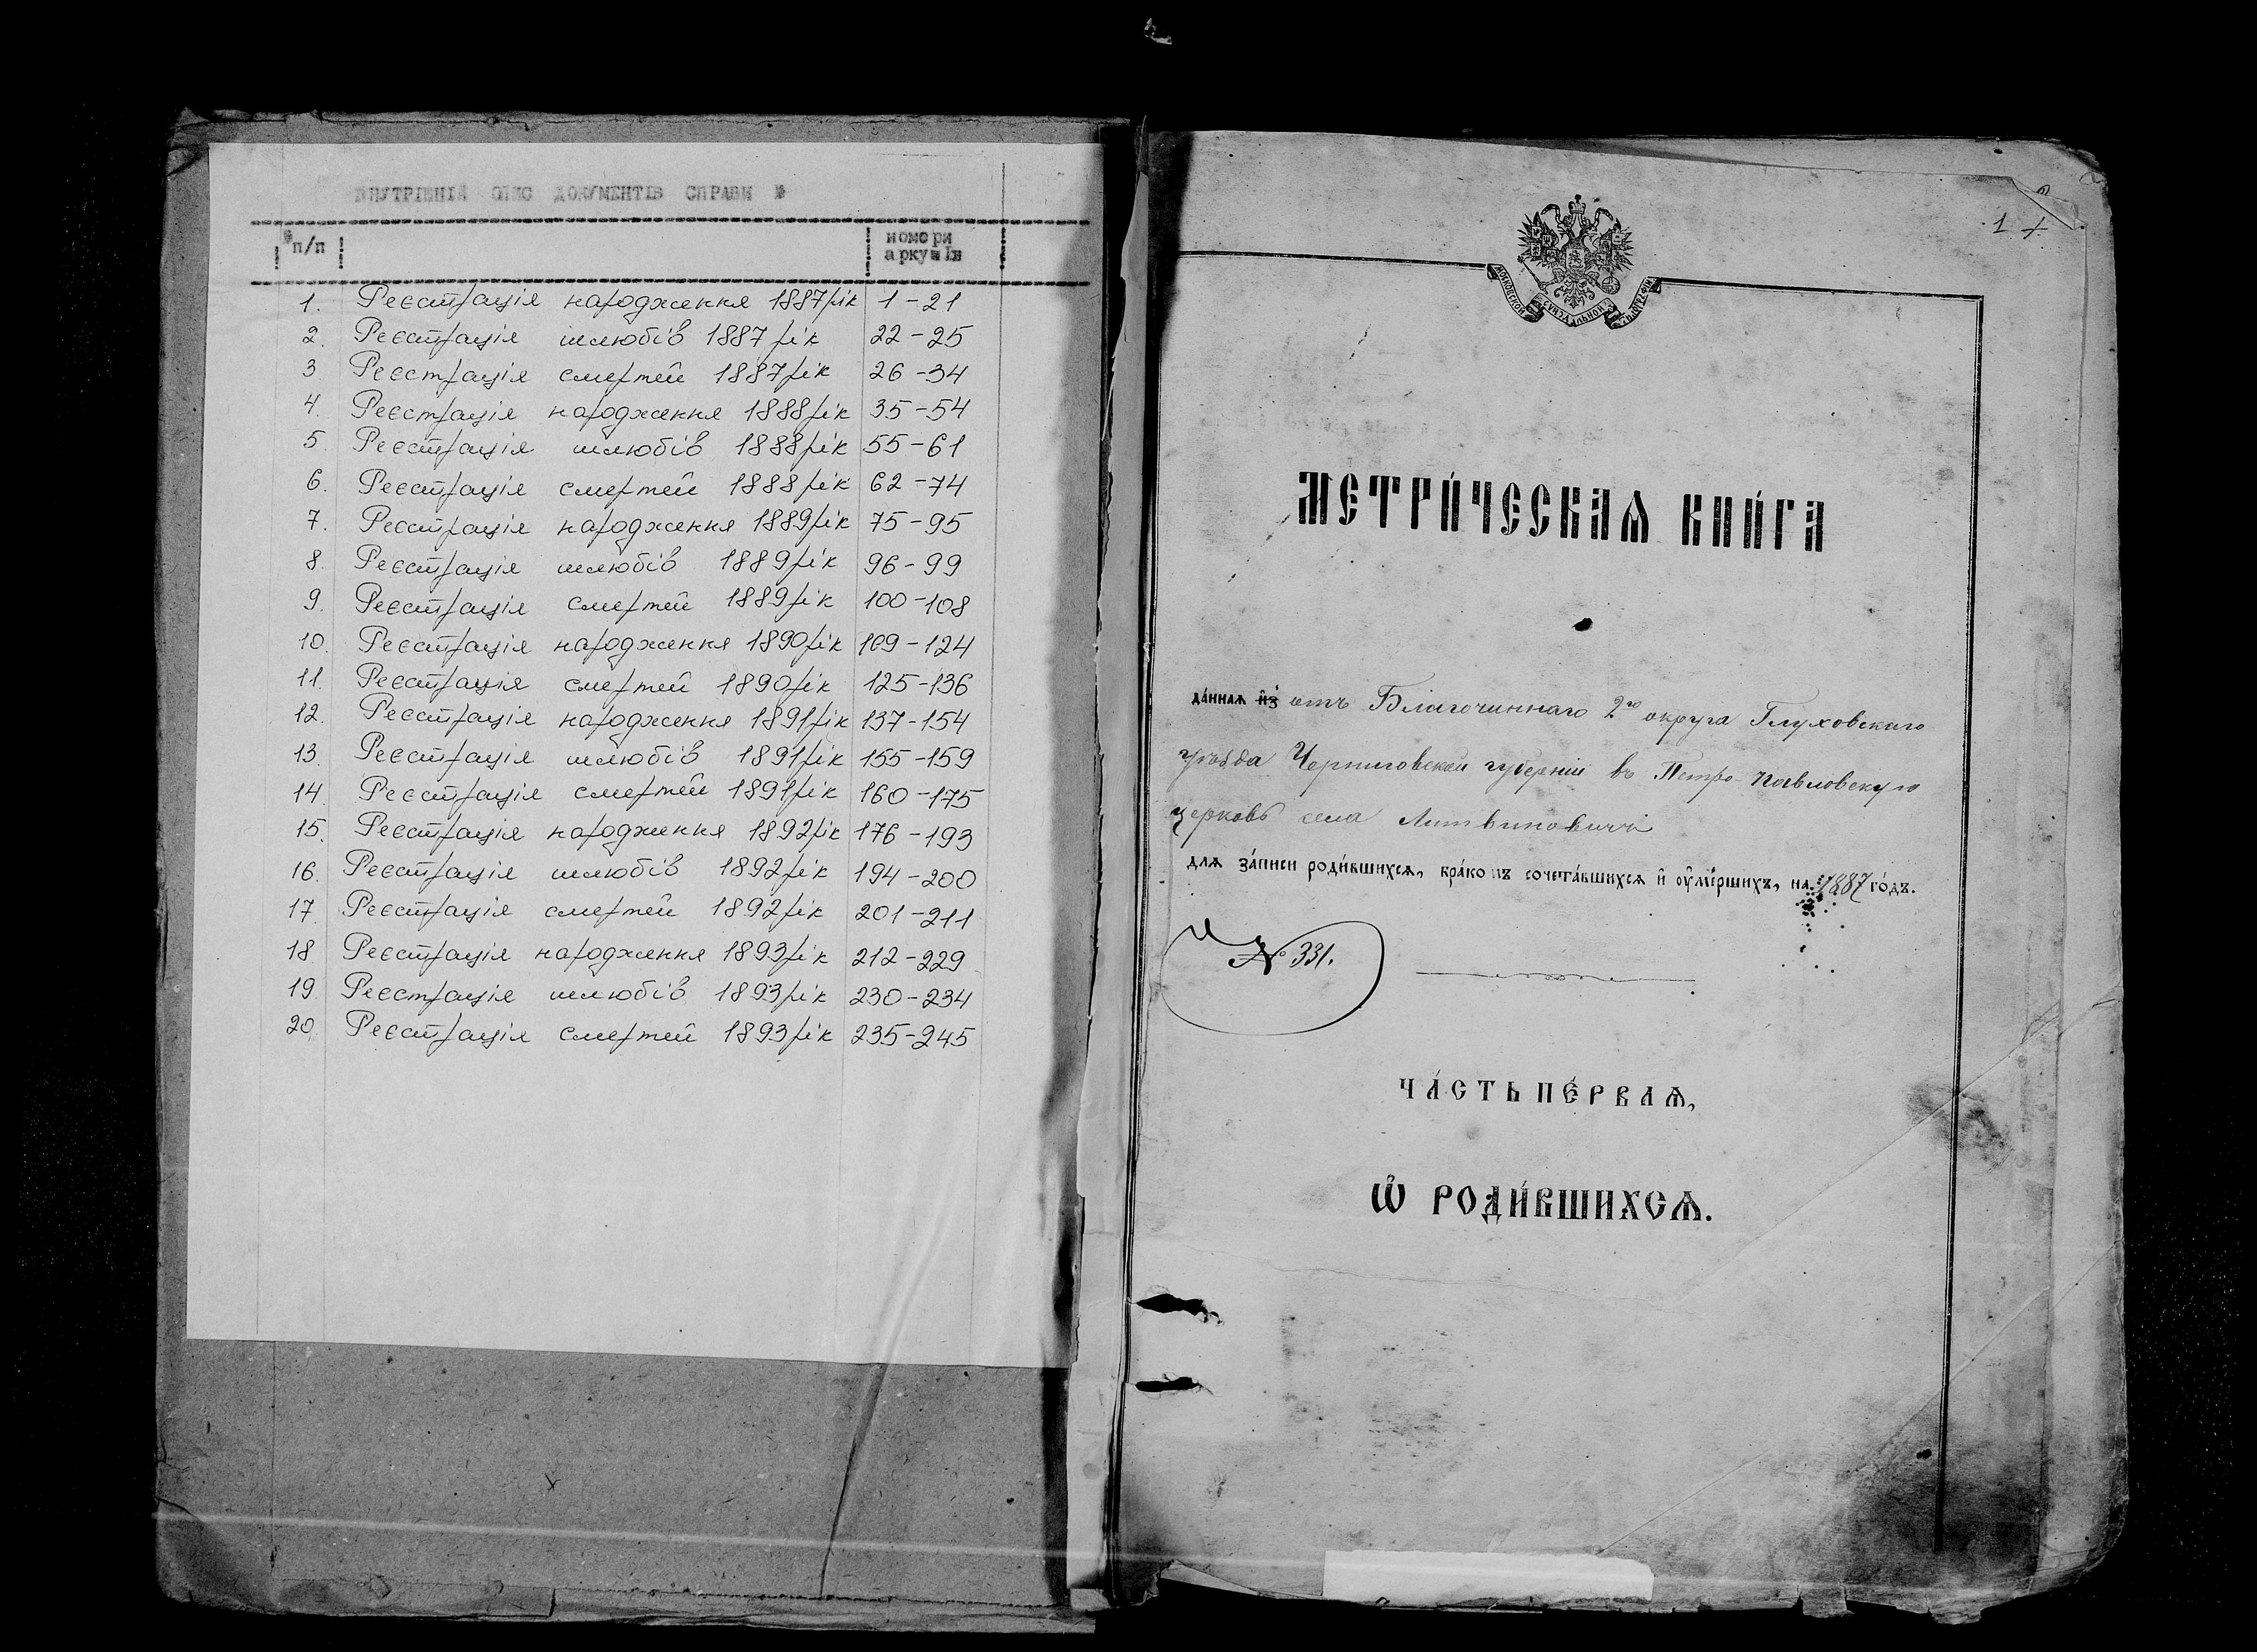 ВНУТРІШНІЙ ОПИС ДОКУМЕНТІВ СПРАВИ №
№ п/п номери аркушів
1. Реєстрація народження 1887 рік 1-21
2. Реєстрація шлюбів 1887 рік 22-25
3 Реєстрація смертей 1887 рік 26-34
4. Реєстрація народження 1888 рік 35-54
5. Реєстрація шлюбів 1888 рік 55-61
6. Реєстрація смертей 1888 рік 62-74
7. Реєстрація народження 1889 рік 75-95
8. Реєстрація шлюбів 1889 рік 96-99
9. Реєстрація смертей 1889 рік 100-108
10. Реєстрація народження 1890 рік 109-124
11. Реєстрація смертей 1890 рік 125-136
12. Реєстрація народження 1891 рік 137-154
13. Реєстрація шлюбів 1891 рік 155-159
14. Реєстрація смертей 1891 рік 160-175
15. Реєстрація народження 1892 рік 176-193
16. Реєстрація шлюбів 1892 рік 194-200
17. Реєстрація смертей 1892 рік 201-211
18 Реєстрація народження 1893 рік 212-229
19 Реєстрація шлюбів 1893 рік 230-234
20 Реєстрація смертей 1893 рік 235-245
1
МОСКОВСКОЙ СѴНОДАЛЬНОЙ ТИПОГРАФІИ
МЕТРИ́ЧЕСКАѦ КНИ́ГА
да́ннаѧ и҆з̾ отъ Благочиннаго 2го округа Глуховскаго
уѣзда Черниговской губерніи въ Петро-Павловскую
церковь села Литвиновичи
длѧ за́писи роди́вшихсѧ, бра́комъ сочета́вшихсѧ и҆ оу҆ме́ршихъ, на 1887 го́дъ.
№ 331.
ЧА́СТЬ ПЕ́РВАѦ,
Ѽ РОДИ́ВШИХСѦ.